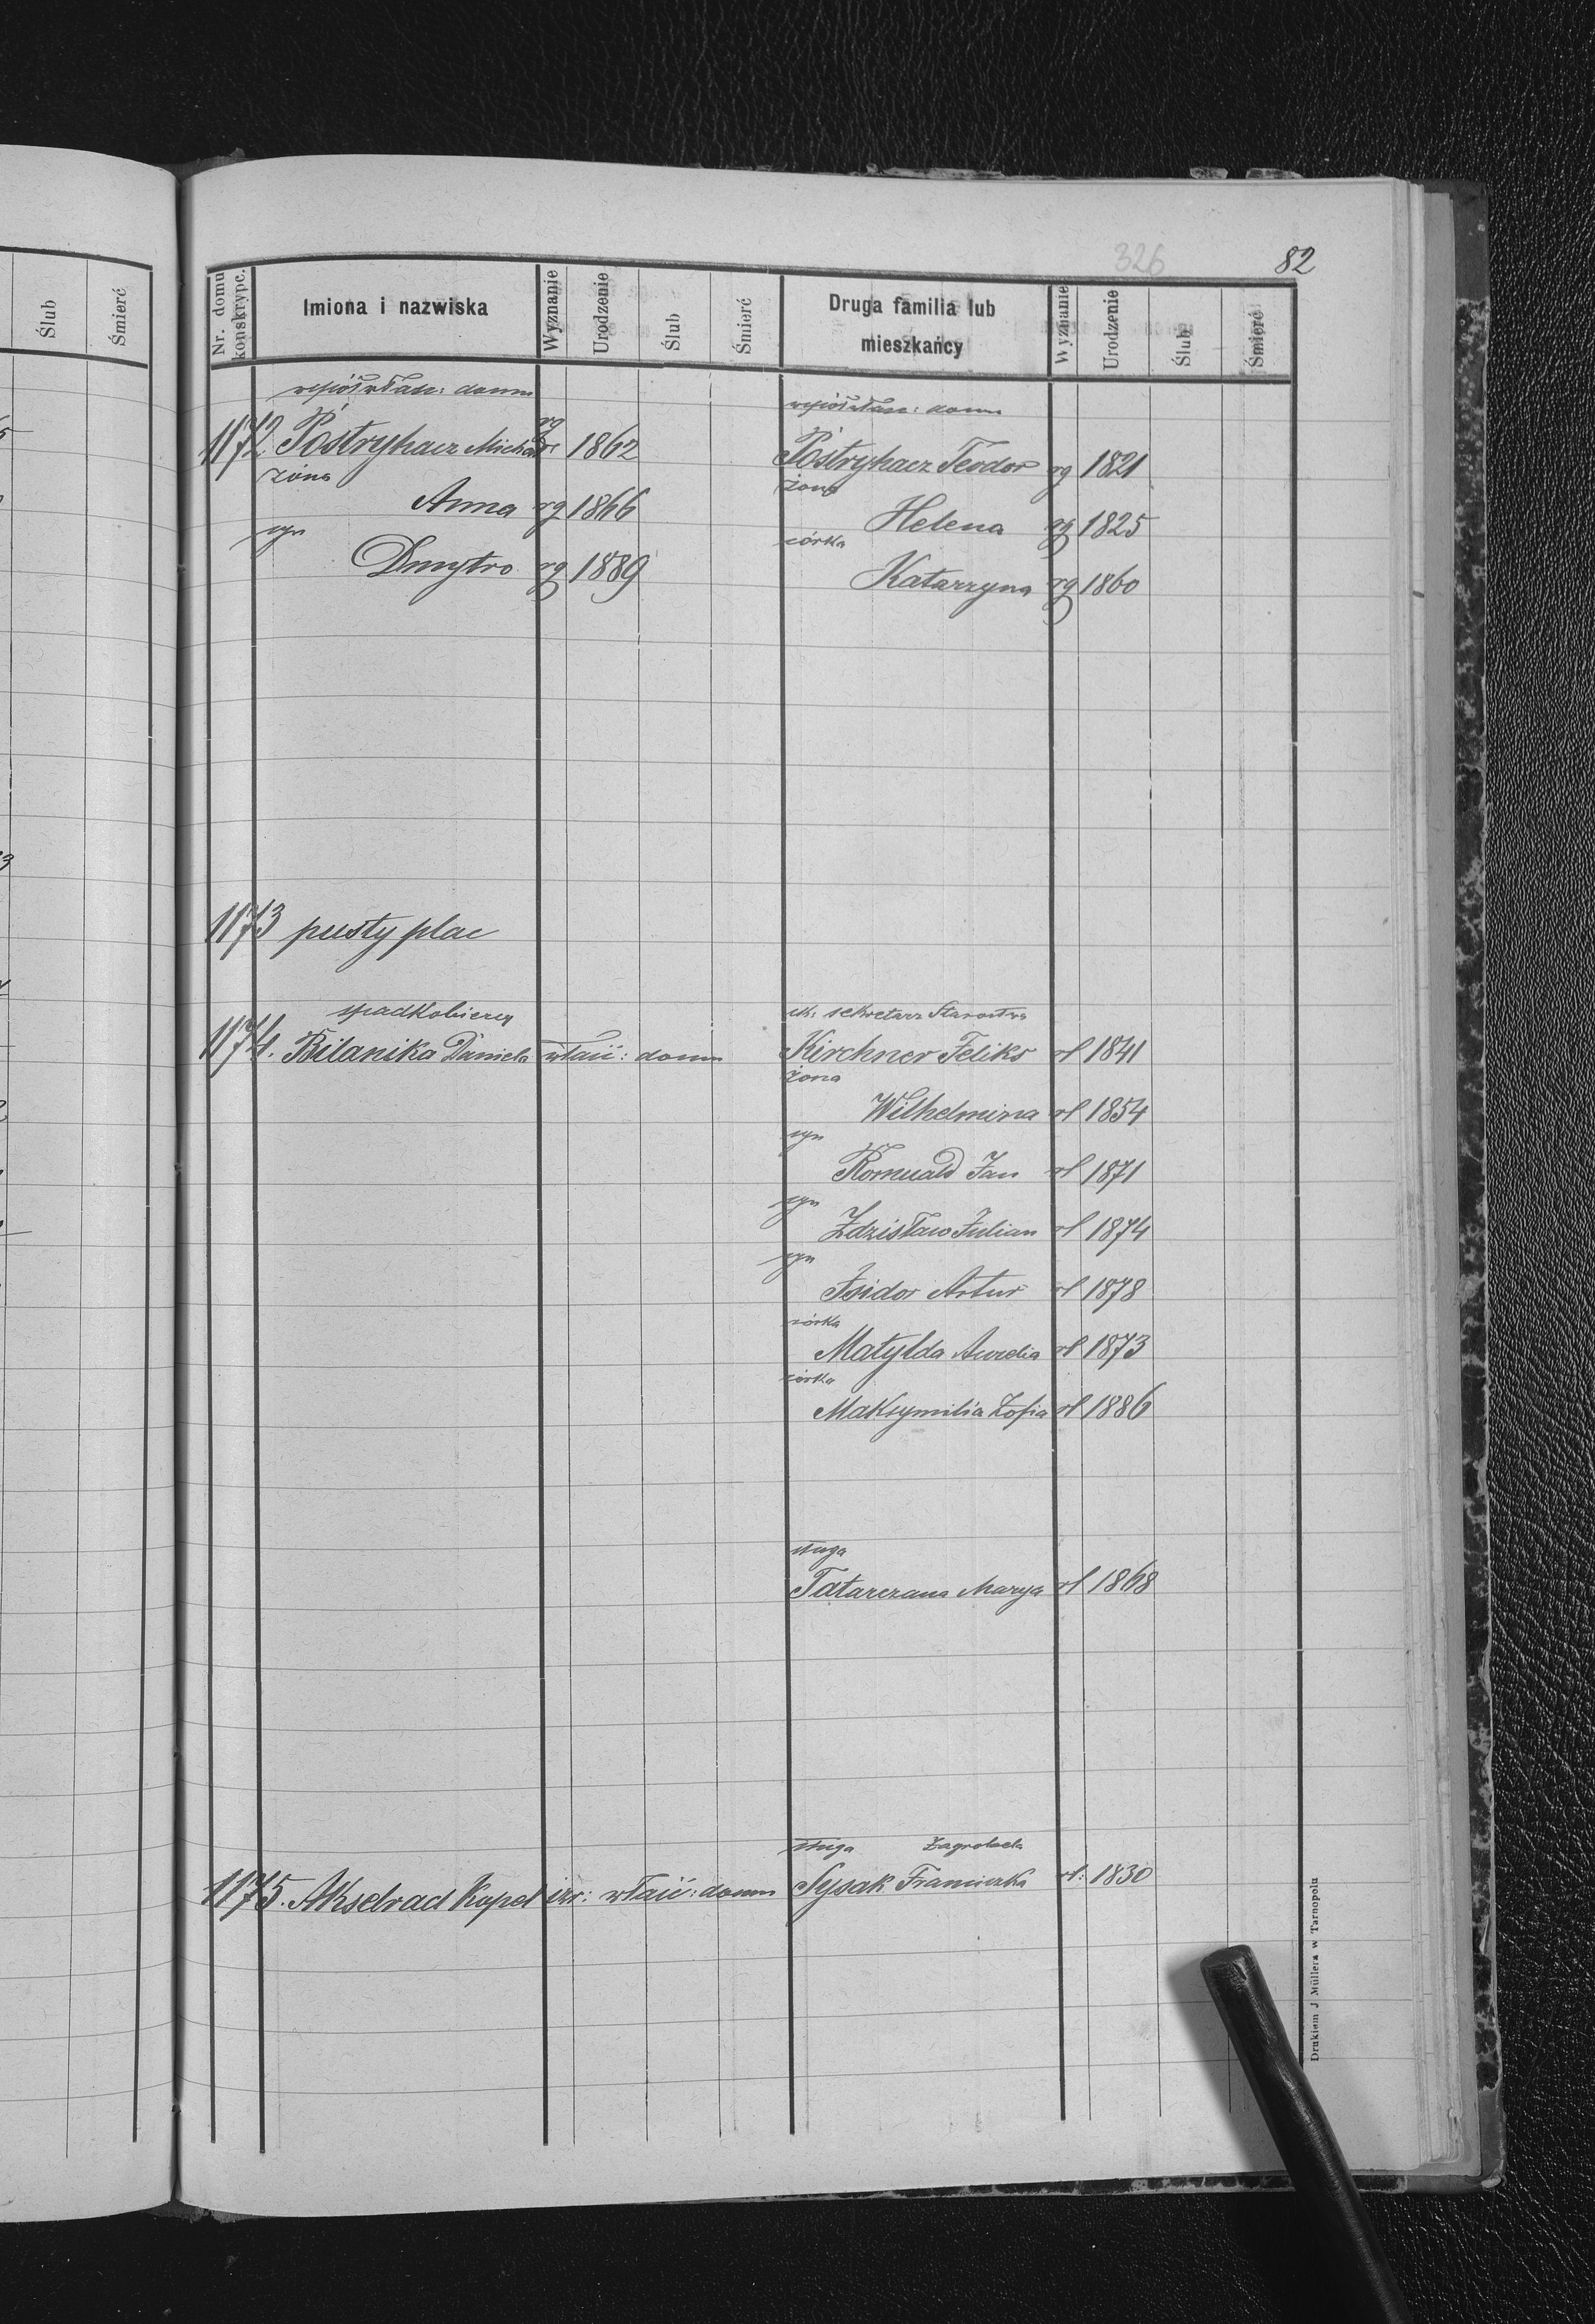 326
82
Ślub
Śmierć
Nr. domu konskrypc.
Imiona i nazwiska
Wyznanie
Urodzenie
Ślub
Śmierć
Druga familia lub
mieszkańcy
Wyznanie
Urodzenie
Ślub
Śmierć
współwłaśc: domu
1172 Postryhacz Michał rg 1862
żona
Anna rg 1866
syn
Dmytro rg 1889
współwłaśc: domu
Postryhacz Teodor rg 1821
żona
Helena rg 1825
córka
Katarzyna rg 1860
1173 pusty plac
spadkobiercy
1174. Bilanika Daniela właść: domu
ck. sekretarz Starostwa
Kirchner Feliks rl 1841
żona
Wilhelmina rl 1854
syn
Romuald Jan rl 1871
syn
Zdzisław Julian rl 1874
syn
Isidor Artur rl 1878
córka
Matylda Aurelia rl 1873
córka
Maksymilia Zofia rl 1886
sługa
Tatarczana Marya rl 1868
1175. Akselrad Kopel izr: właść: domu
sługa Zagrobela
Sysak Franciszka rł: 1830
Drukiem J Müllera w Tarnopolu